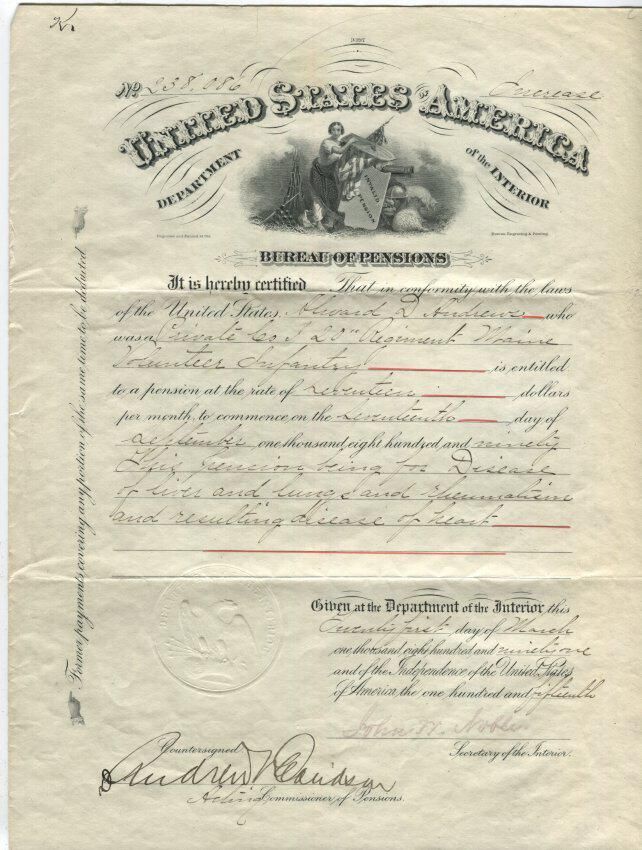 K.
3-327
No. 238,086 Increase
UNITED STATES OF AMERICA
DEPARTMENT of the INTERIOR
INVALID PENSION
Engraved and Printed at the Bureau Engraving & Printing.
BUREAU OF PENSIONS
It is hereby certified That in conformity with the laws
of the United States, D. Andrews who
was a Private Co I 20" Regiment Maine
Volunteer Infantry is entitled
to a pension at the rate of seventeen dollars
per month, to commence on the seventeenth day of
September one thousand eight hundred and ninety
This pension being for Disease
of liver and lungs and rheumatism
and resulting disease of heart
Former payments covering any portion of the same time to be deducted
Given at the Department of the Interior this
Twenty first day of March
one thousand eight hundred and ninety one
and of the Independence of the United States
of America, the one hundred and fifteenth
John W. Noble
Secretary of the Interior.
Countersigned,
Andrew Davidson
Acting Commissioner of Pensions.